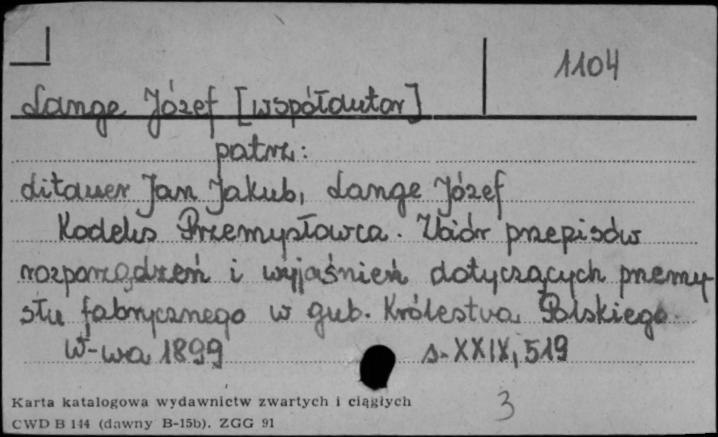 1104
Lange Józef [współautor]
patrz:
Litauer Jan Jakub, Lange Józef
Kodeks Przemysłowca. Zbiór przepisów
rozporządzeń i wyjaśnień dotyczących przemy
słu fabrycznego w gub. Królestwa Polskiego.
W-wa 1899 s. XXIX, 519
Karta katalogowa wydawnictw zwartych i ciągłych
CWD B 144 (dawny B-15b). ZGG 91
3